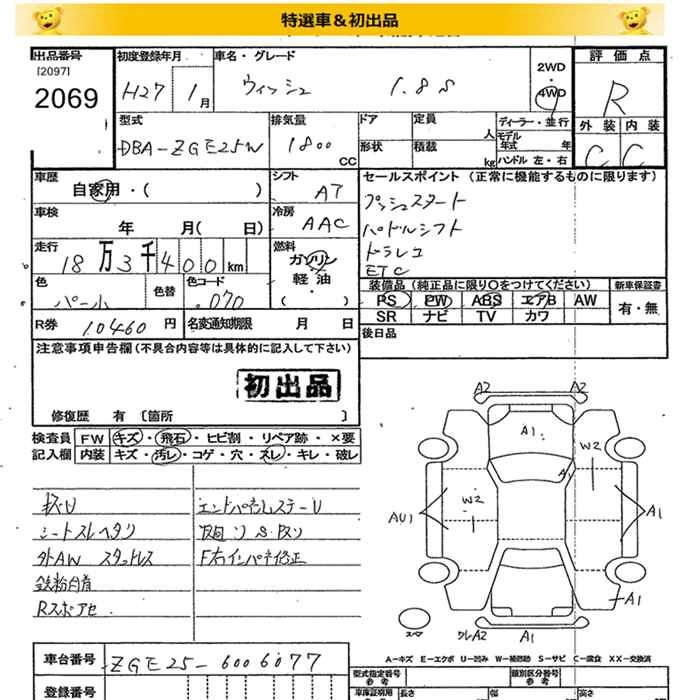 特選車＆初出品
出品番号
[2097]
2069
初度登録年月
H27 1月
車名・グレード
ウィッシュ 1.8S
2WD
4WD
評価点
R
外装 内装
C C
型式
DBA-ZGE25W
排気量
1800
CC
ドア
形状
定員
人
積載
kg
ディーラー・並行
モデル
年式 年
ハンドル 左・右
車歴
自家用・( )
シフト
AT
セールスポイント (正常に機能するものに限ります)
プッシュスタート
パドルシフト
ドラレコ
ETC
車検
年 月( 日)
冷房
AAC
走行
18万3千400km
燃料
ガソリン
・
軽油
・
色
パール
色替
色コード
070
装備品 (純正品に限り○をつけてください)
新車保証書
PS PW ABS エアB AW
SR ナビ TV カワ
有・無
R券 10460円
名変通知期限 月 日
後日品
注意事項申告欄(不具合内容等は具体的に記入して下さい)
初出品
修復歴 有 〔箇所 〕
検査員
記入欄
FW キズ・飛石・ヒビ割・リペア跡・×要
内装 キズ・汚レ・コゲ・穴・スレ・キレ・破レ
シートスレヘタリ
外AW スタッドレス
鉄粉
Rスポアセ
F右インパネ修正
A2 A2
A1
A1
W2
W2
AU1
A1
A1
スペア
ワレA2 A1
A－キズ E－エクボ U－凹み W－補修跡 S－サビ C－腐食 XX－交換済
車台番号
ZGE25-6006077
登録番号
型式指定番号
参考
類別区分番号
参考
車庫証明用
参考
長さ
幅
高さ